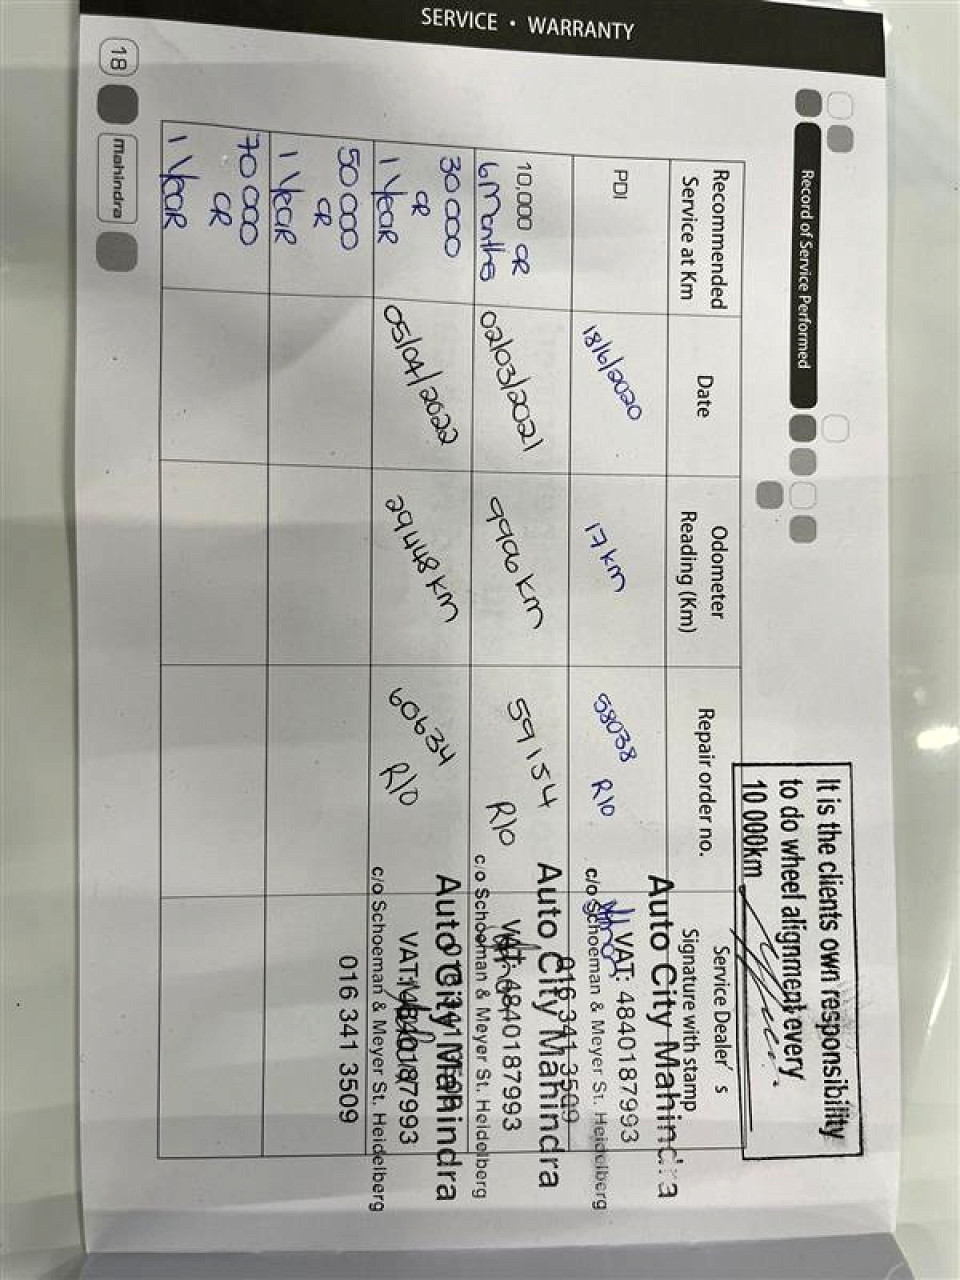 SERVICE • WARRANTY
Record of Service Performed
It is the clients own responsibility
to do wheel alignment every
10 000km
Recommended Service at Km
Date
Odometer Reading (Km)
Repair order no.
Service Dealer's Signature with stamp
PDI
18/6/2020
17 km
58038 R/O
Auto City Mahindra
VAT: 4840187993
c/o Schoeman & Meyer St. Heidelberg
016 341 3509
10,000 OR
6 Months
02/03/2021
9996 km
59154 R/O
Auto City Mahindra
VAT: 4840187993
c/o Schoeman & Meyer St. Heidelberg
30 000
OR
1 YEAR
05/04/2022
29448 KM
60634 R/O
Auto City Mahindra
VAT: 4840187993
c/o Schoeman & Meyer St. Heidelberg
016 341 3509
50 000
OR
1 YEAR
70 000
OR
1 YEAR
18
Mahindra